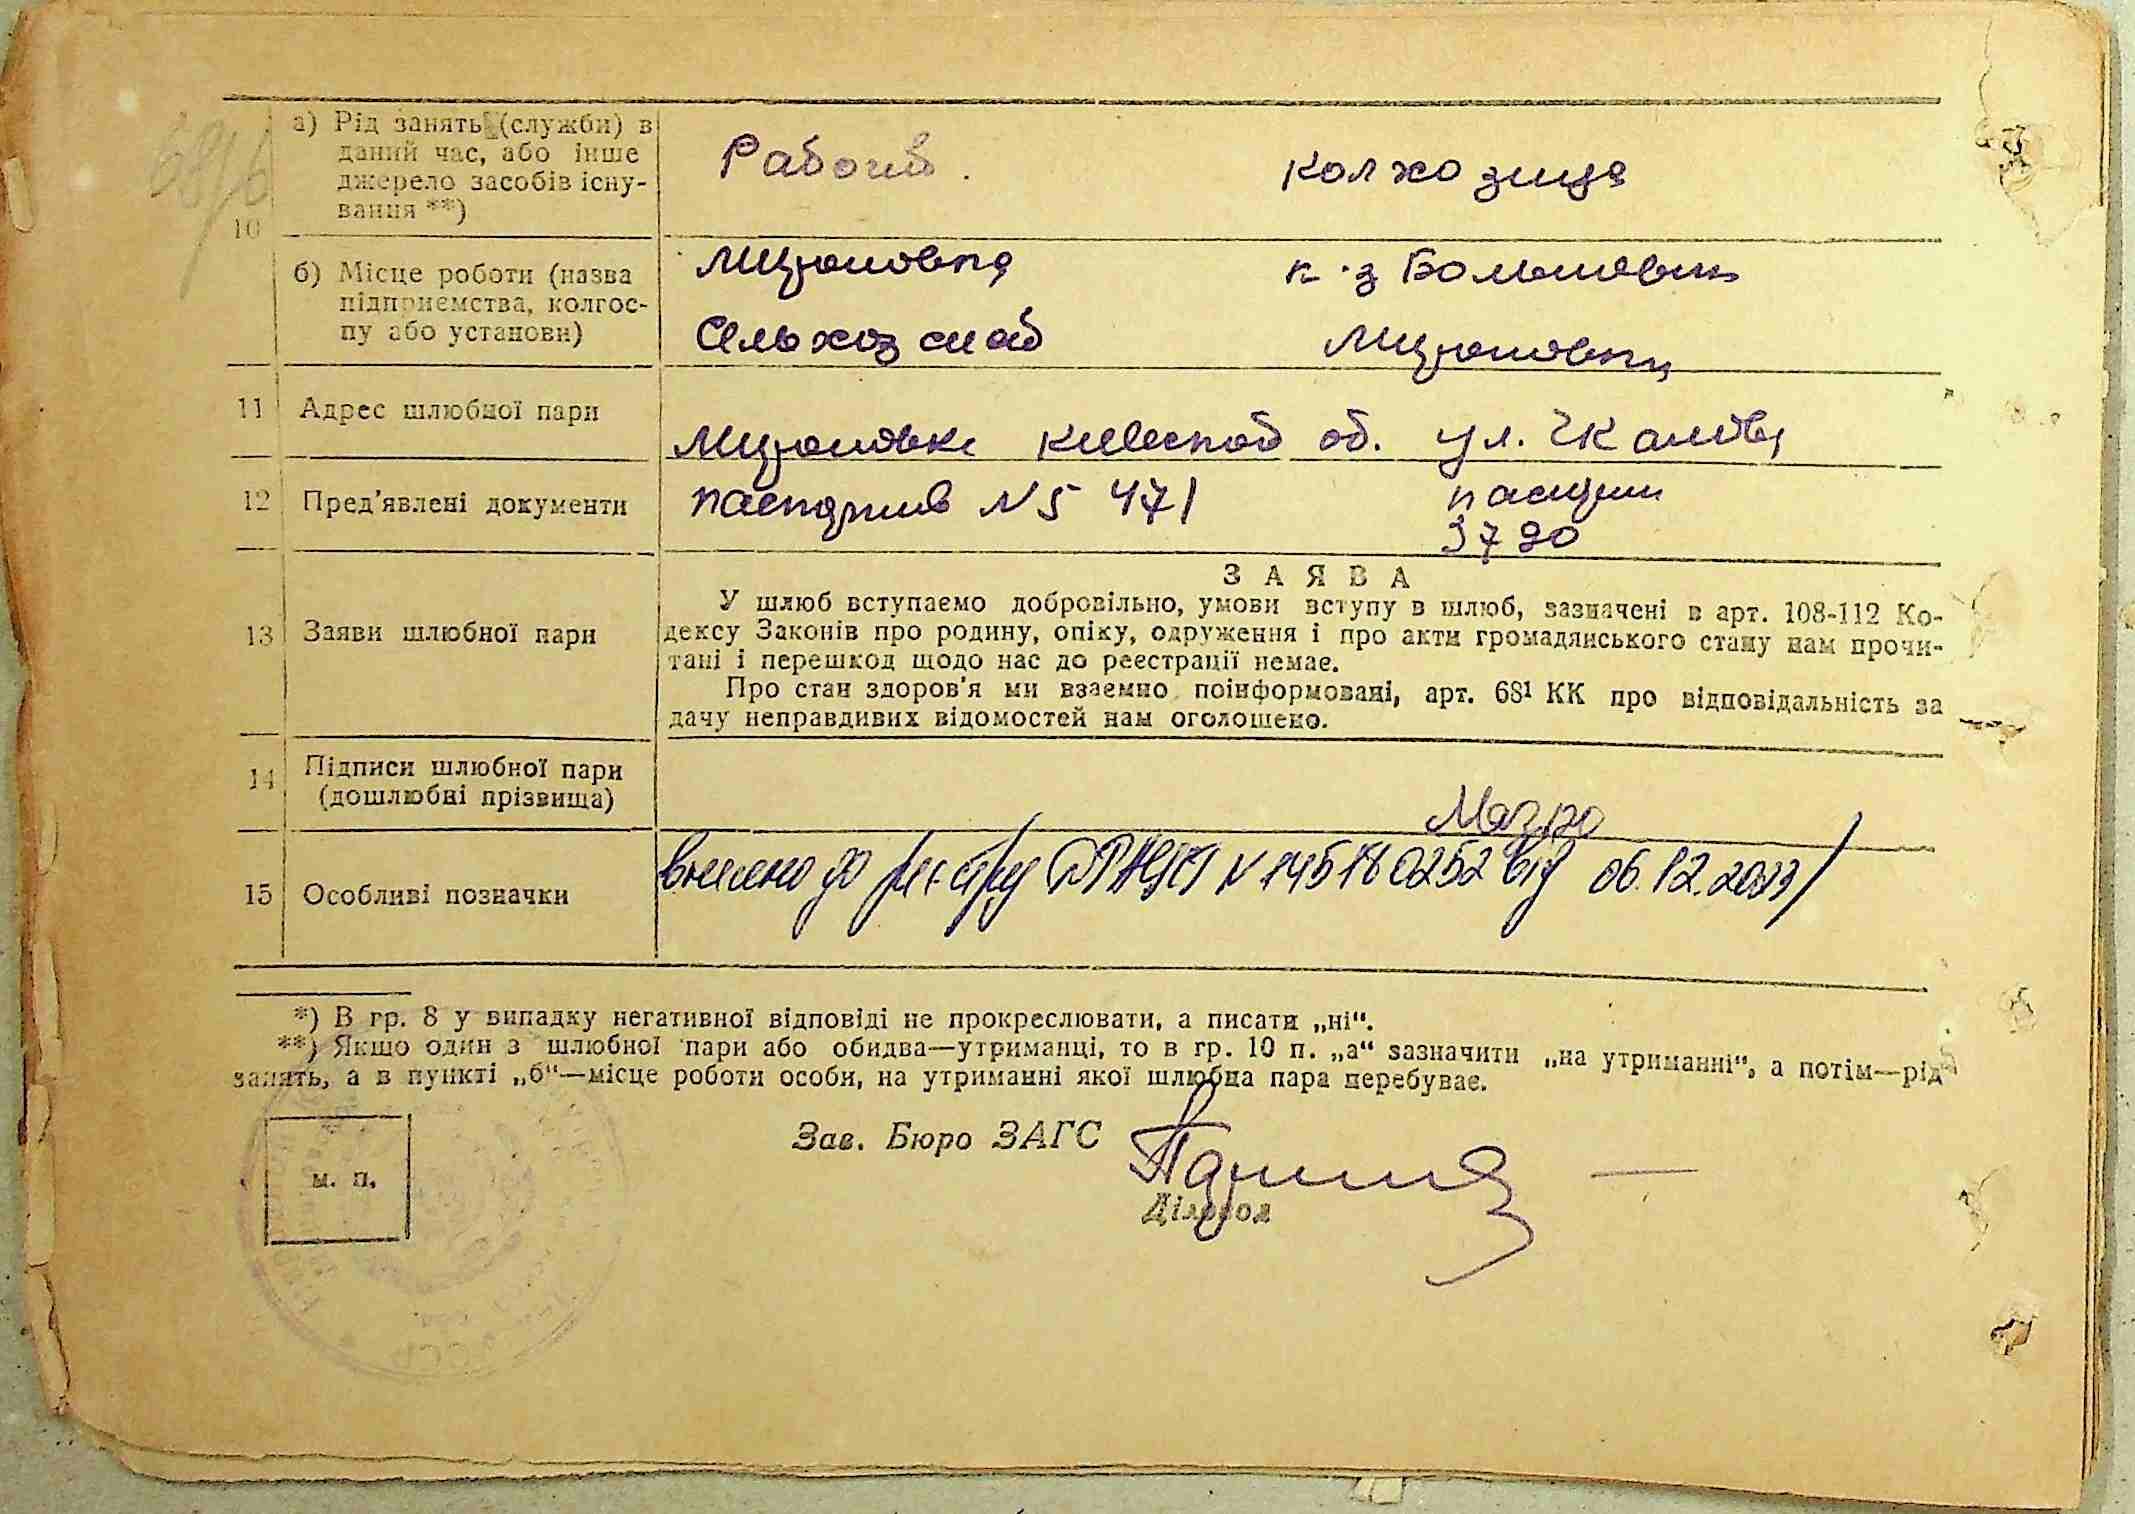 а) Рід занять (службн) в
даний час, або інше
джерело засобів існу-
вання **)
Рабочий.
колхозница
10
б) Місце роботи (назва
підприємства, колгос-
пу або установи)
Мироновка
к-з Большевик
Сельхозснаб
Мироновка
11 Адрес шлюбної пари
Мироновка Киевской об. ул. Чкалова
12 Пред'явлені документи
N 5 471
3790
З А Я В А
13 Заяви шлюбної пари
У шлюб вступаємо добровільно, умови вступу в шлюб, зазначені в арт. 108-112 Ко-
дексу Законів про родину, опіку, одруження і про акти громадянського стану нам прочи-
тані і перешкод щодо нас до реєстрації немає.
Про стан здоров'я ми взаємно поінформовані, арт. 68¹ КК про відповідальність за
дачу неправдивих відомостей нам оголошено.
14 Підписи шлюбної пари
(дошлюбні прізвища)
15 Особливі позначки
внесено до реєстру ДРАЦСГ N 145180252 від 06.12.2023
*) В гр. 8 у випадку негативної відповіді не прокреслювати, а писати „ні“.
**) Якщо один з шлюбної пари або обидва—утриманці, то в гр. 10 п. „а“ зазначити „на утриманні“, а потім—рід
занять, а в пункті „б“—місце роботи особи, на утриманні якої шлюбна пара перебуває.
Зав. Бюро ЗАГС
м. п.
Діловод